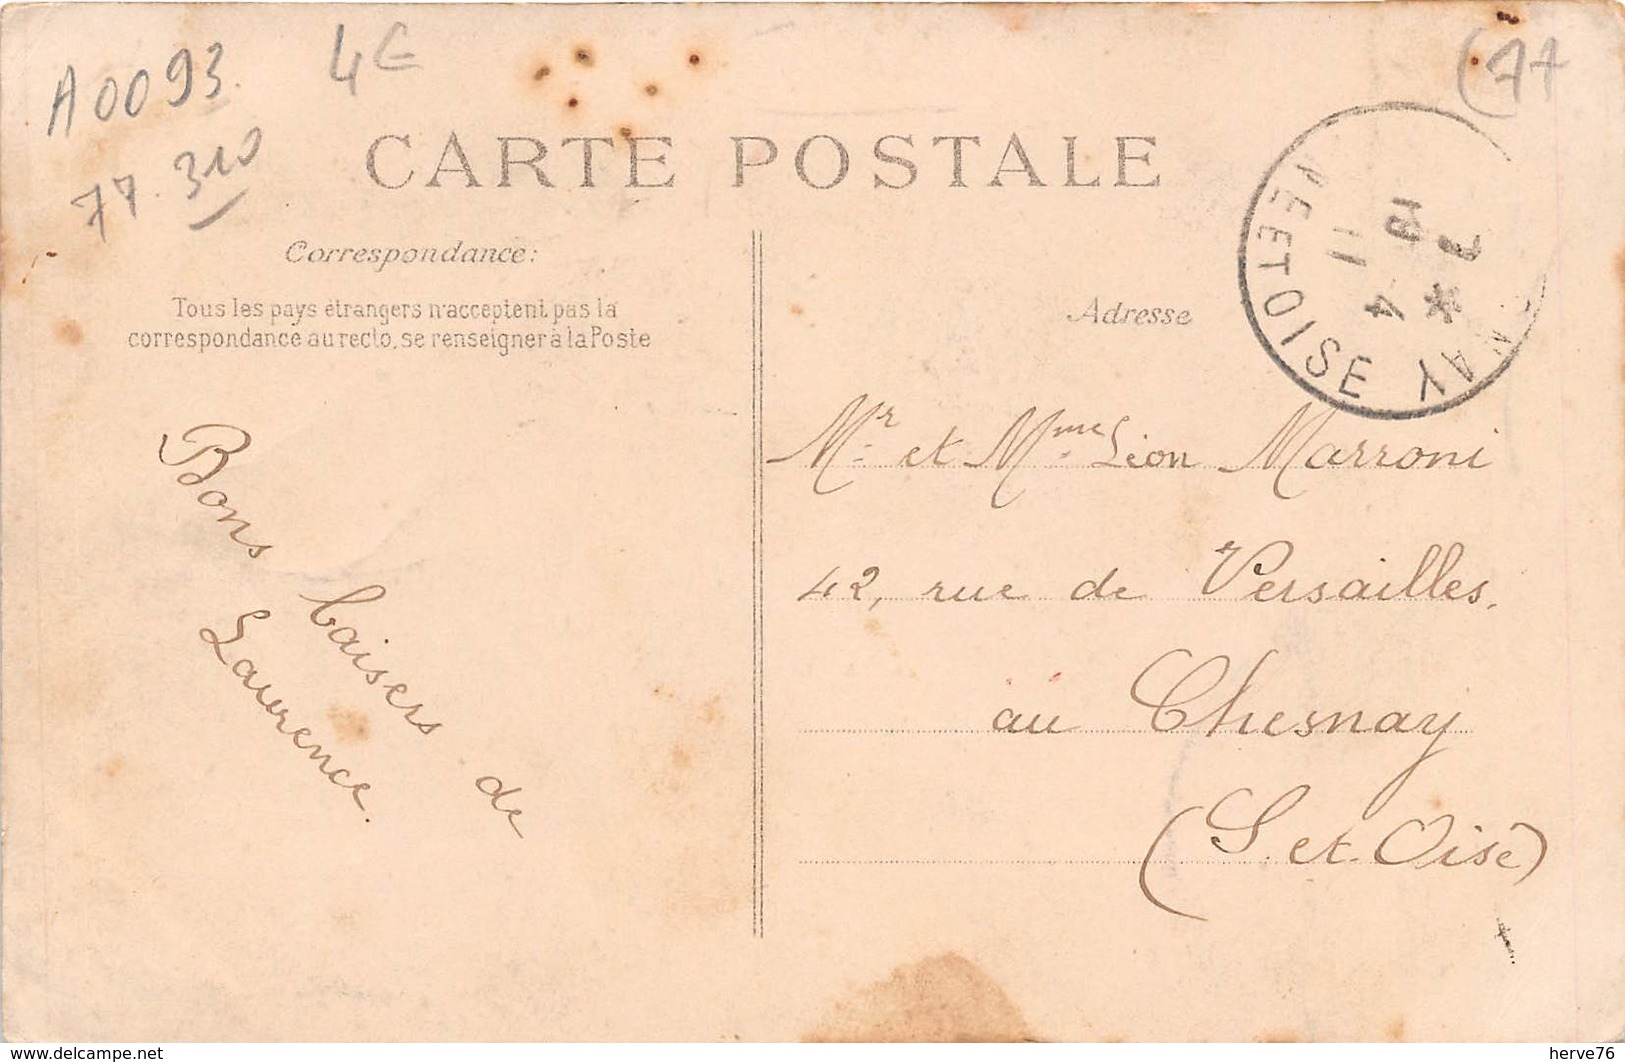 A0093.
4€
(77
77.310
CARTE POSTALE
Correspondance:
Tous les pays étrangers n'acceptent pas la
correspondance au recto, se renseigner à la Poste
Adresse
NAY
ET OISE
7 * 
11 4
19
Bons baisers de
Laurence.
Mr. et Mme. Léon Marroni
42, rue de Versailles.
au Chesnay
(S. et. Oise)
www.delcampe.net
herve76